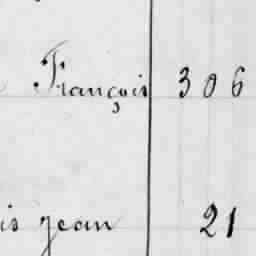 François 306
is jean 21